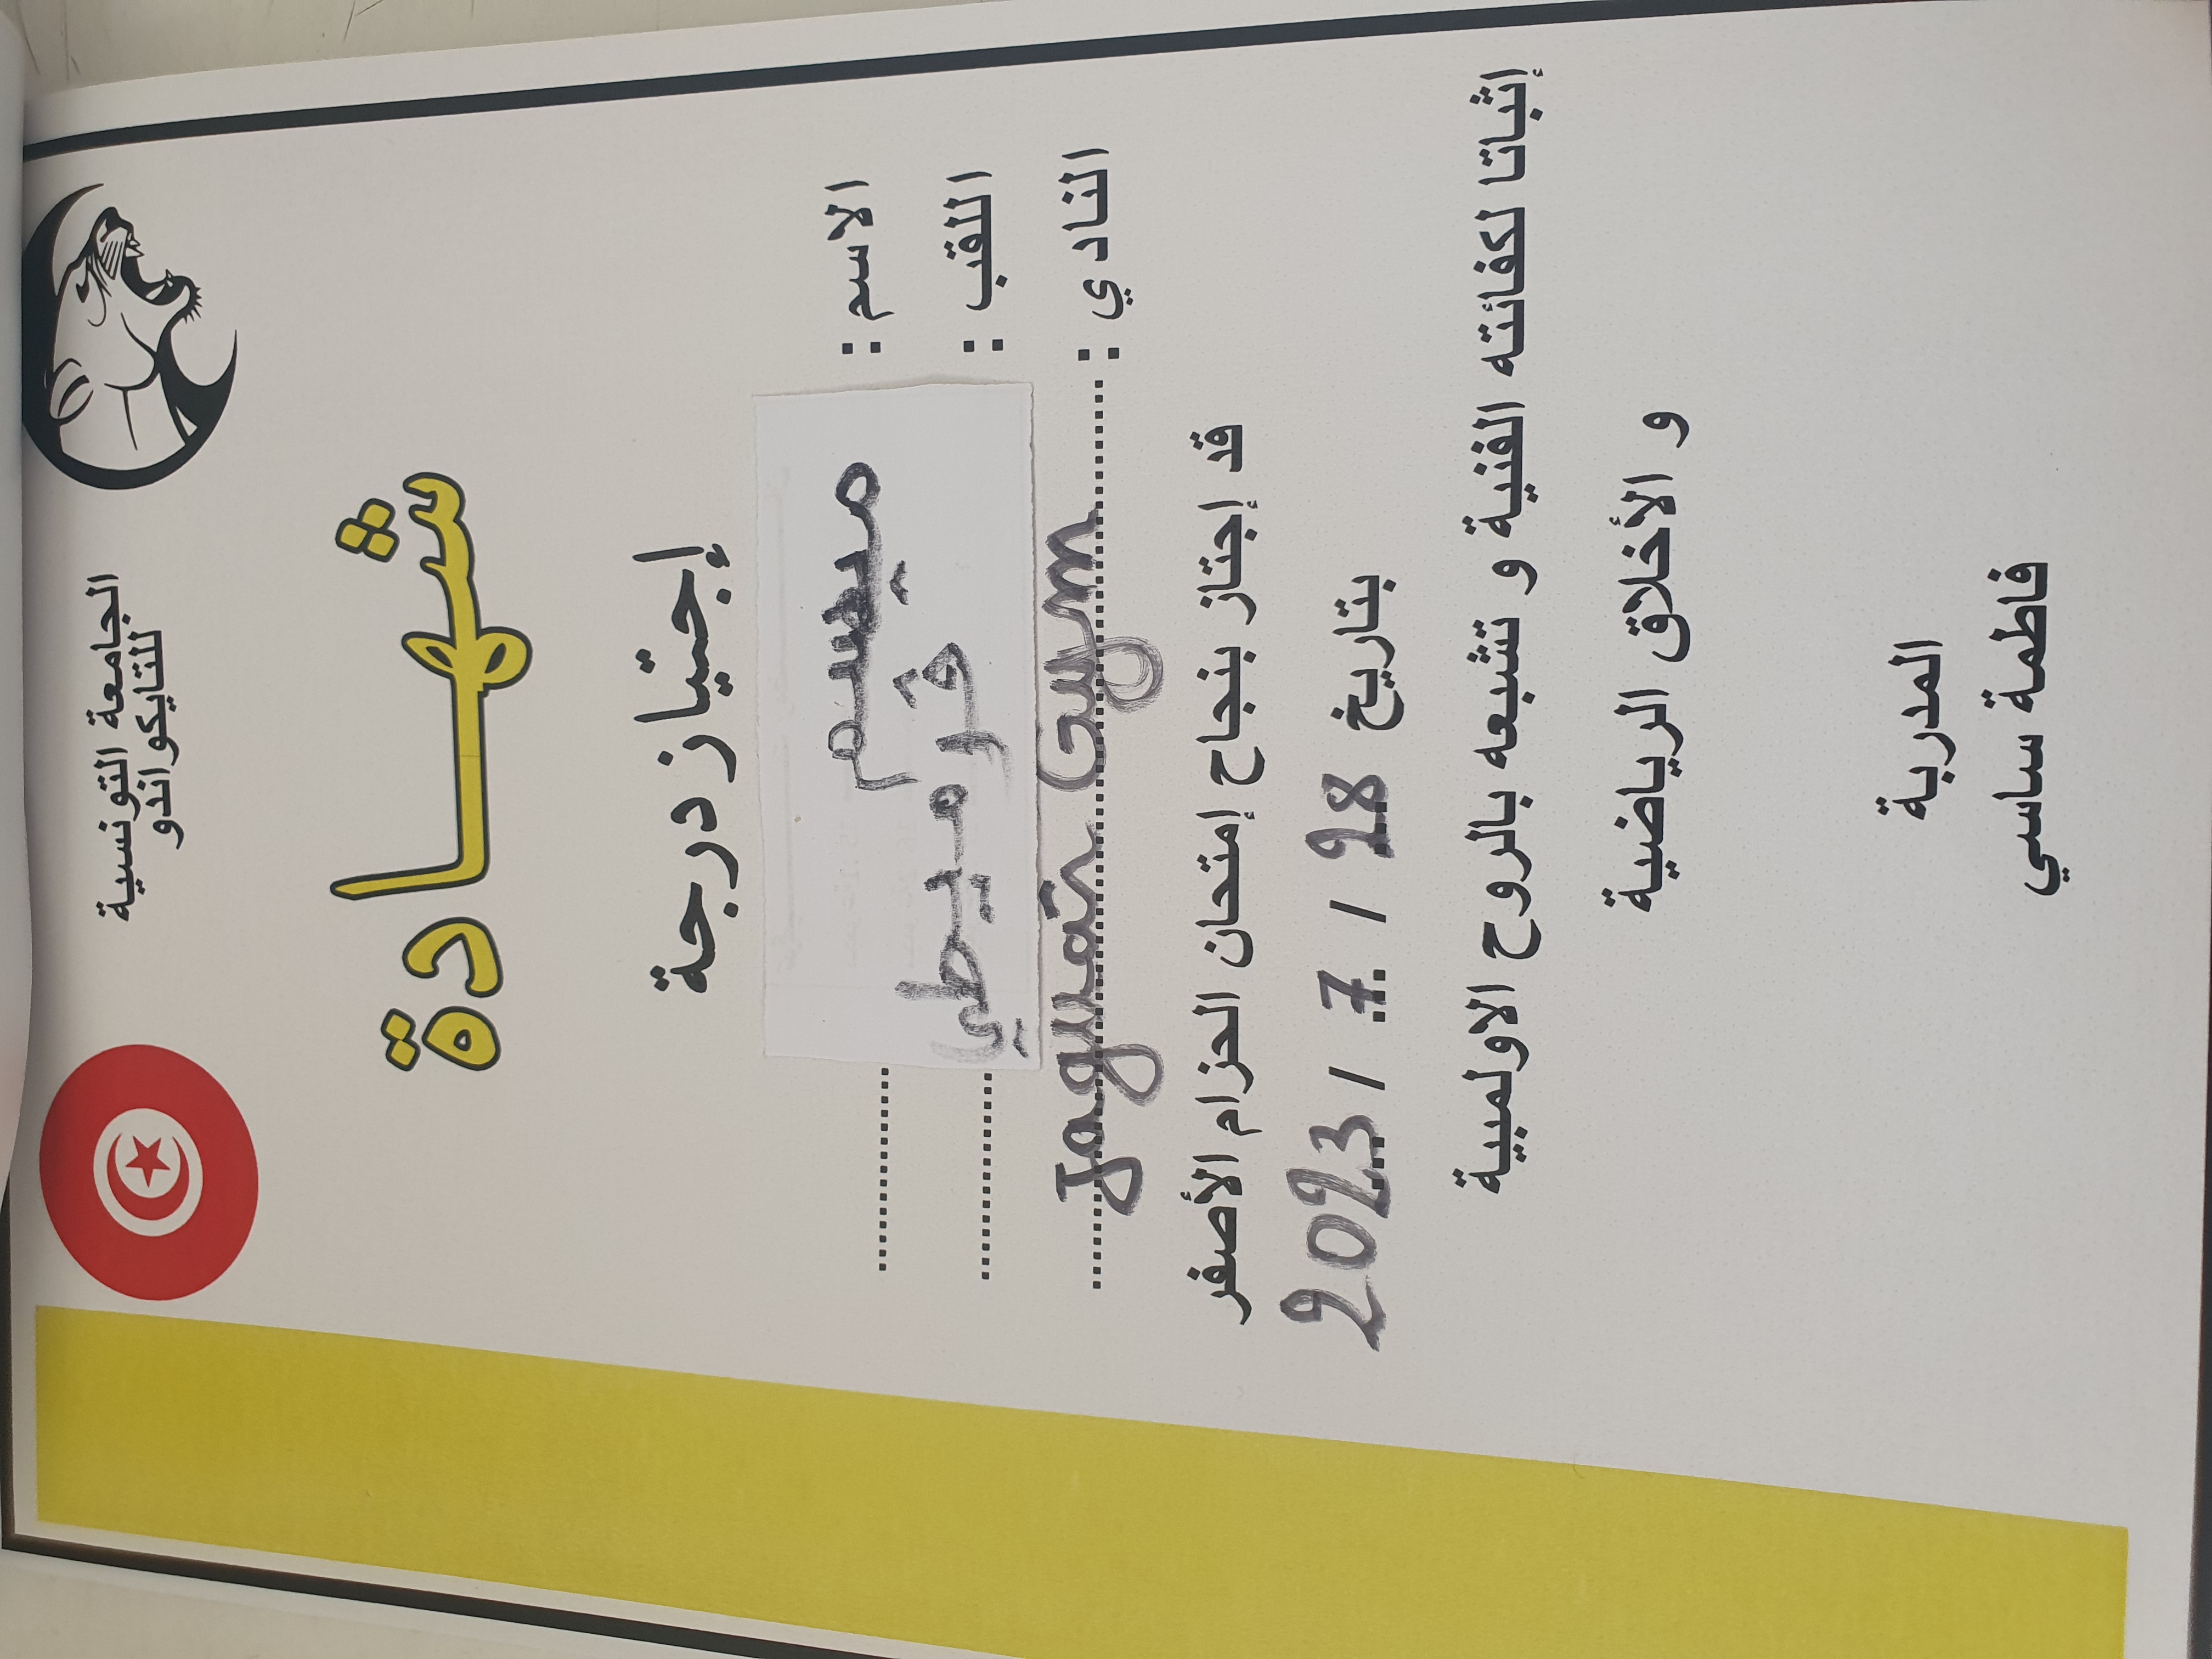 الجامعة التونسية
للتايكواندو
شهادة
إجتياز درجة
الاسم : ميسم
اللقب : ڨرميطي
النادي : Jaguar Gym
قد إجتاز بنجاح إمتحان الحزام الأصفر
بتاريخ 28 / 7 / 2023
إثباتا لكفائته الفنية و تشبعه بالروح الاولمبية
و الأخلاق الرياضية
المدربة
فاطمة ساسي